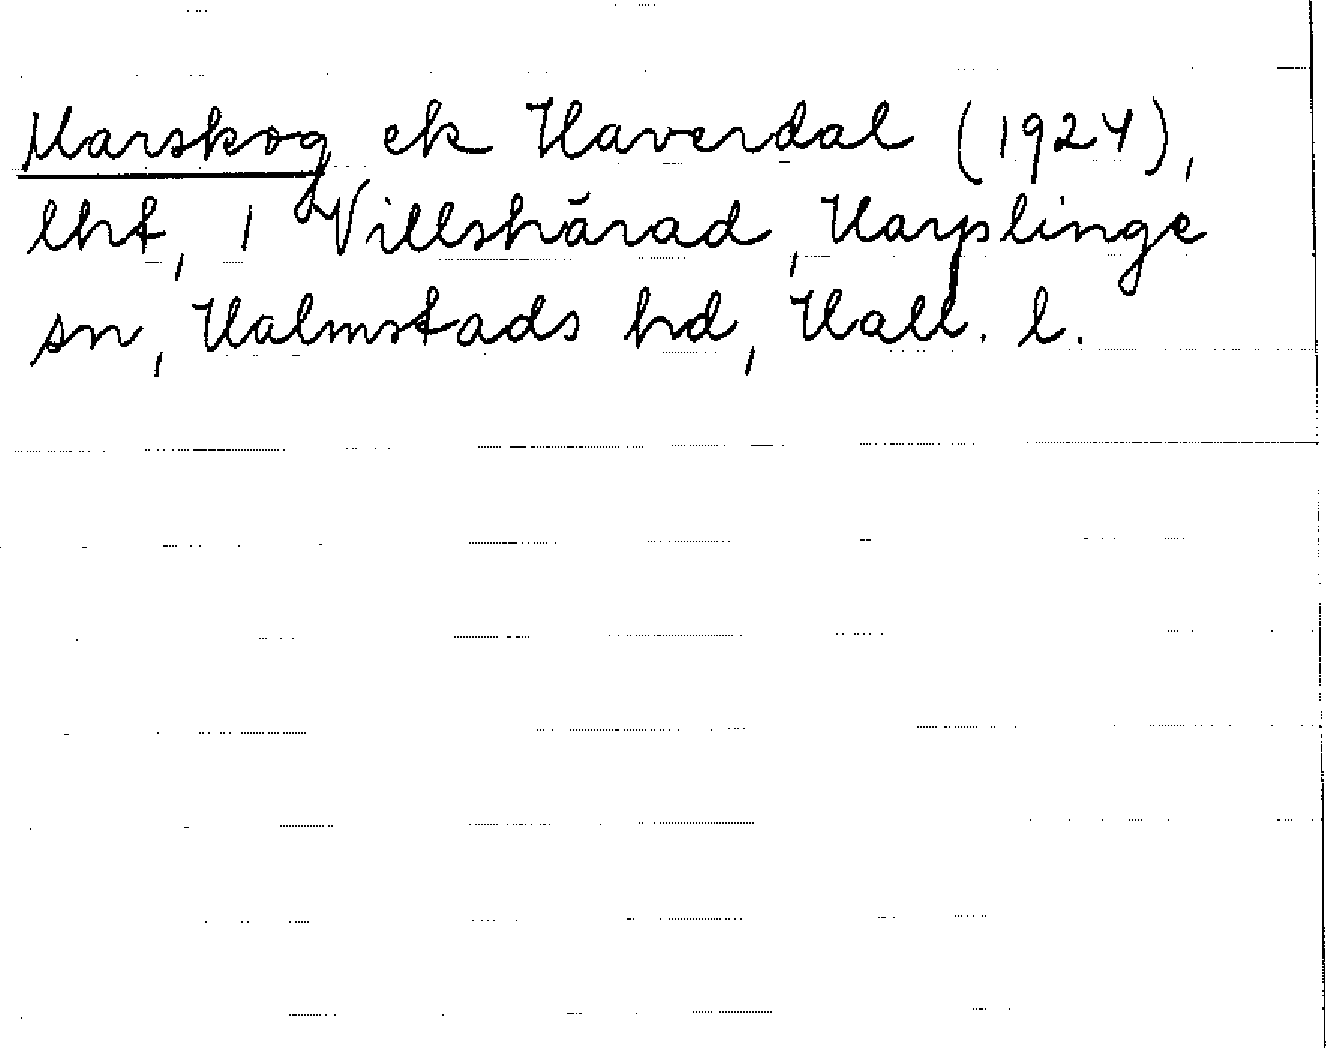 Marskog ek Haverdal (1924),
lht, 1 Villshärad, Harplinge
sn, Halmstads hd, Hall. l.